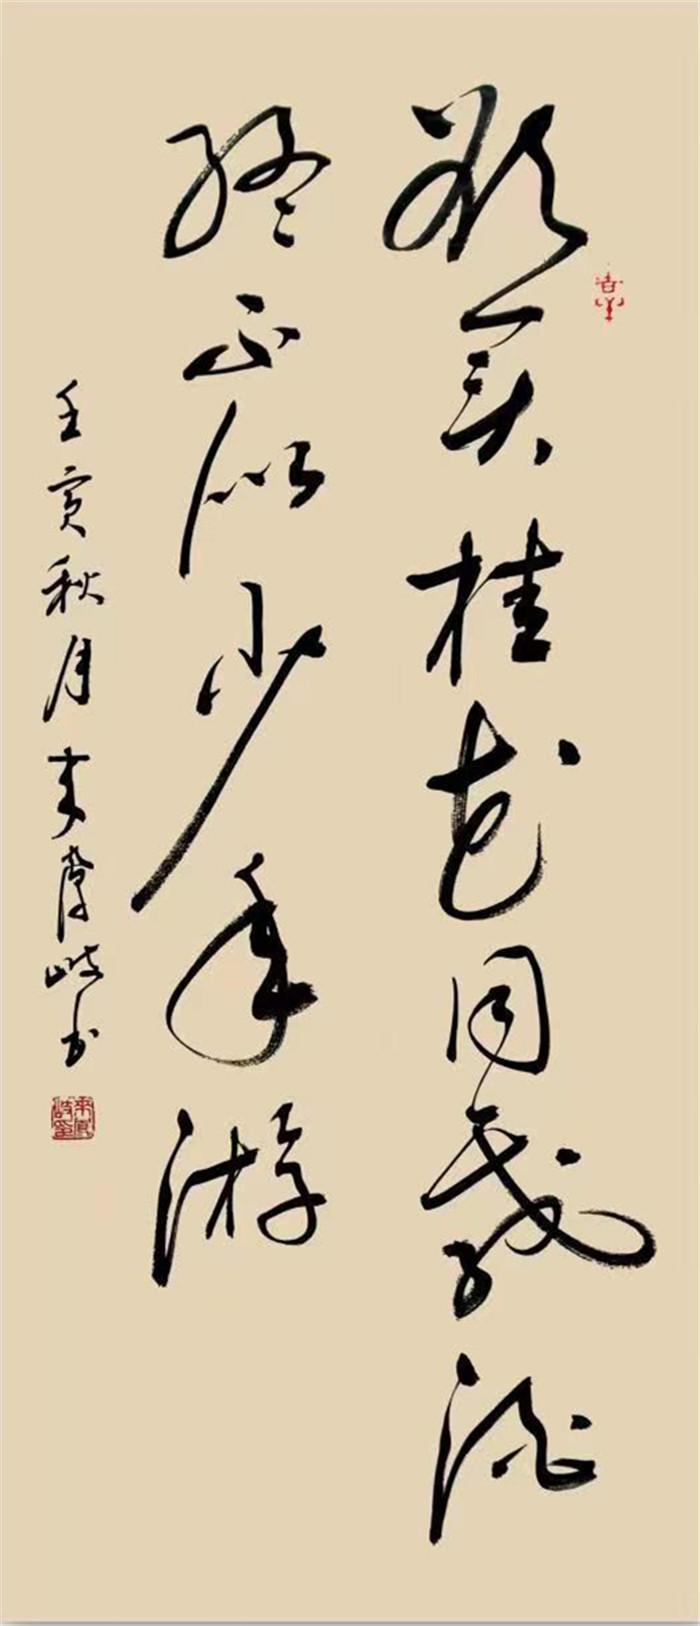 欲买桂花同载酒
终不似少年游
壬寅秋月来凤岐书